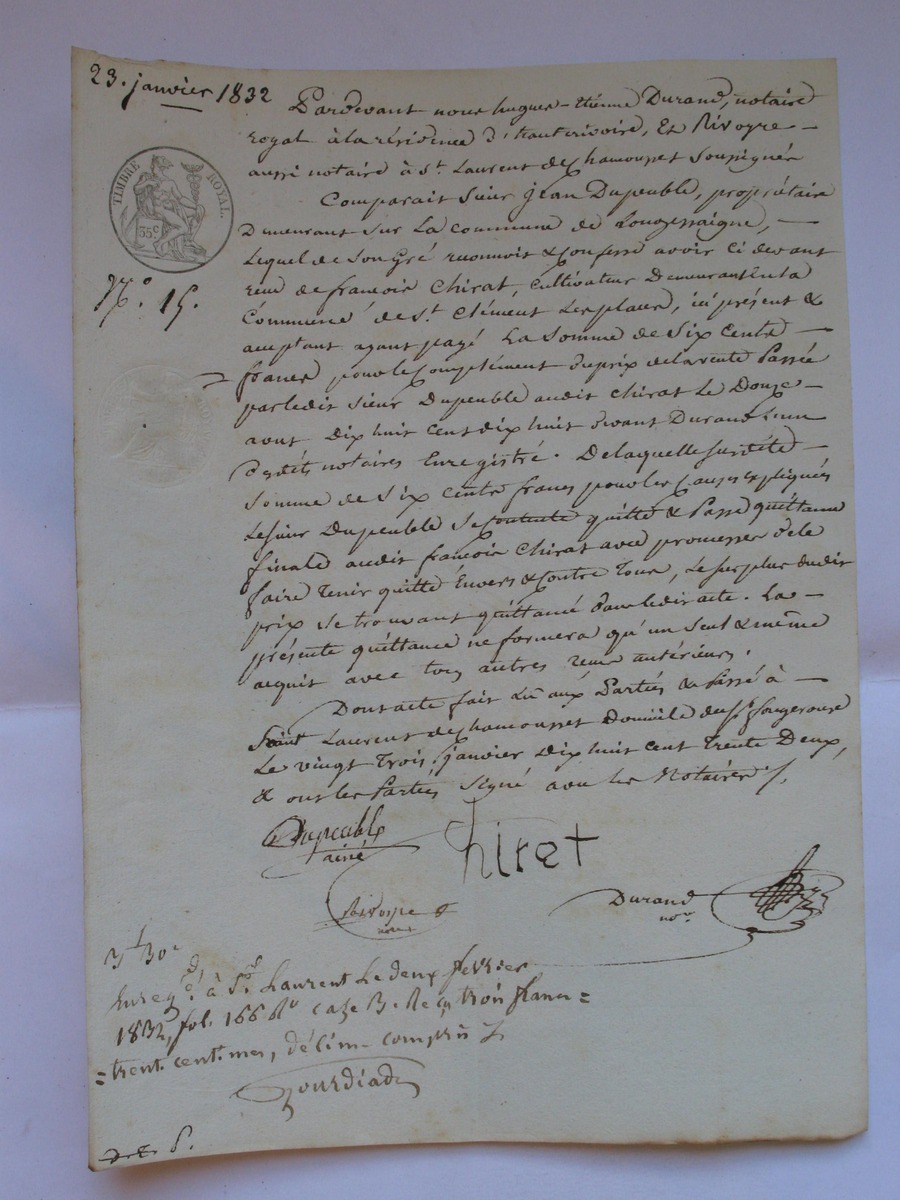 23. janvier 1832
Pardevant nous hugues-étienne Durand, notaire
royal à la résidence d'hauterivoire, Et Rivoyre
aussi notaire à St. Laurent de Chamousset soussignés
Comparait sieur jean Dupeuble, propriétaire
Demeurant sur La Commune de Longessaigne,
Lequel de son Gré reconnoit & Confesse avoir Ci devant
reçu de françois Chirat, cultivateur Demeurant en la
Commune de St. Clément Les places, ici présent &
acceptant ayant payé La somme de Six Cents
francs pour le Complément du prix de la vente Passée
par ledit sieur Dupeuble audit Chirat Le Douze
aout Dix huit Cent dix huit devant Durand L'un
desdits notaires Enregistré. De laquelle susdite
somme de six cents francs pour les Causes Expliquées
Le sieur Dupeuble se contente quitte & Passe quittance
finale audit françois Chirat avec promesse de le
faire Tenir quitte Envers & Contre Tous, Le surplus dudit
prix se trouvant quittancé dans ledit acte. La
présente quittance ne formera qu'un seul & même
acquit avec tous autres reçus antérieurs.
Dont acte fait Lu aux Parties & Passé à
Saint Laurent de Chamousset Domicile du Sr. fougerouse
Le vingt Trois janvier Dix huit cent Trente Deux,
& ont les Parties Signé avec les Notaires
TIMBRE ROYAL.
35c
No. 15.
Dupeuble
ainé
Chirat
Rivoyre
Durand
nore
3f 30c
Enregé. à St. Laurent Le deux fevrier
1832, fol. 166 Ro Case 3. Reçu trois francs
trente centimes, décime compris
Bourdiad